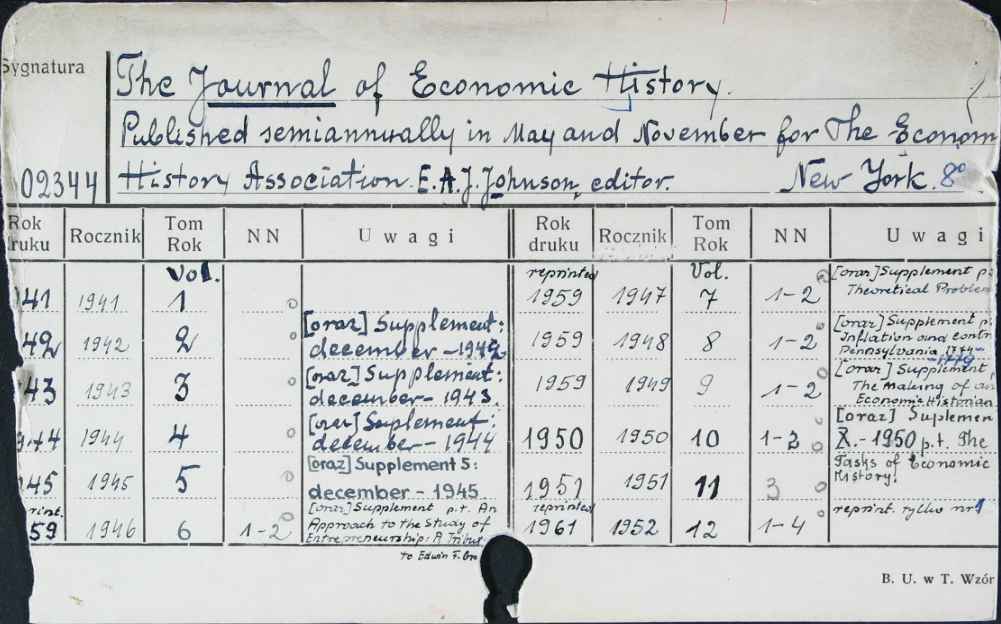 Sygnatura
The Journal of Economic History.
Published semiannually in May and November for The Econom
02344 History Association. E.A.J. Johnson, editor. New York. 8°
Rok druku Rocznik Tom Rok NN Uwagi Rok druku Rocznik Tom Rok NN Uwagi
Vol. reprinted Vol. [oraz] Supplement p.
41 1941 1 1959 1947 7 1-2 Theoretical Problem
[oraz] Supplement: [oraz] Supplement p.
42 1942 2 december - 1942 1959 1948 8 1-2 Inflation and contr
Pennsylvania 1774-1779
[oraz] Supplement: [oraz] Supplement
43 1943 3 december - 1943. 1959 1949 9 1-2 The making of an
Economic Historian
[oraz] Suplement: [oraz] Suplemen
44 1944 4 december - 1944 1950 1950 10 1-2 X.-1950 p.t. The
[oraz] Supplement 5: Tasks of Economic
45 1945 5 december - 1945 1951 1951 11 3 History.
rint. [oraz] Supplement p.t. An reprinted reprint. tylko nr 1
59 1946 6 1-2 Approach to the Study of 1961 1952 12 1-4
Entrepreneurship: A Tribut
to Edwin F.
B. U. w T. Wzór